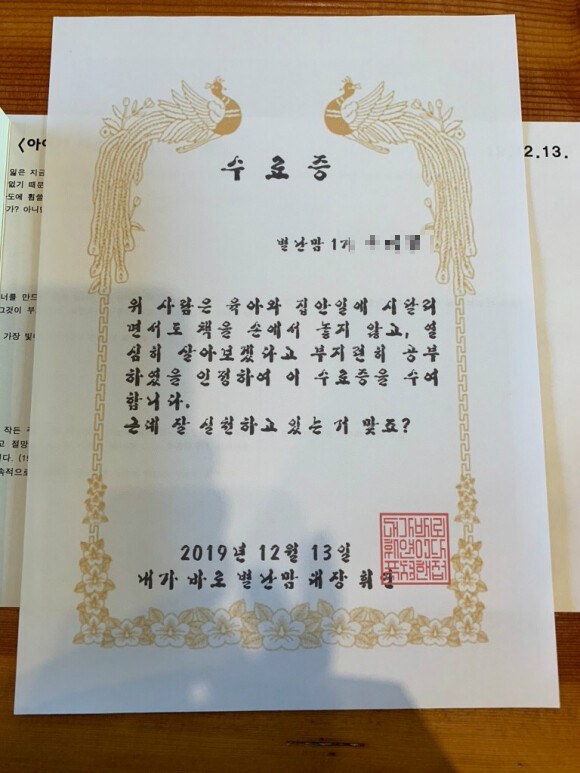 <아이
2.13.
잃은 지금
없기 때문
도에 휩쓸
가? 아니면
너를 만드
그것이 부
가장 빛
작든
고 절망
다. (19
속적으로
수료증
별난맘 1기
위 사람은 육아와 집안일에 시달리
면서도 책을 손에서 놓지 않고, 열
심히 살아보겠다고 부지런히 공부
하였음을 인정하여 이 수료증을 수여
합니다.
근데 잘 실천하고 있는 거 맞죠?
2019년 12월 13일
내가 바로 별난맘 대장 휘연
내가바로
휘연이다